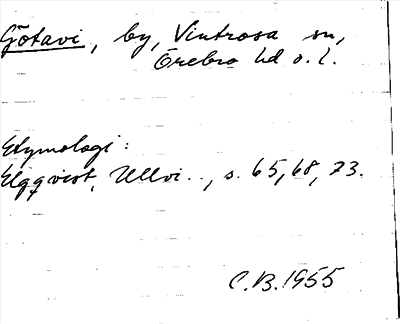 Götavi, by, Vintrosa sn,
Örebro hd o. l.
Etymologi:
Elgqvist, Ullvi.., s. 65, 68, 73.
C.B. 1955